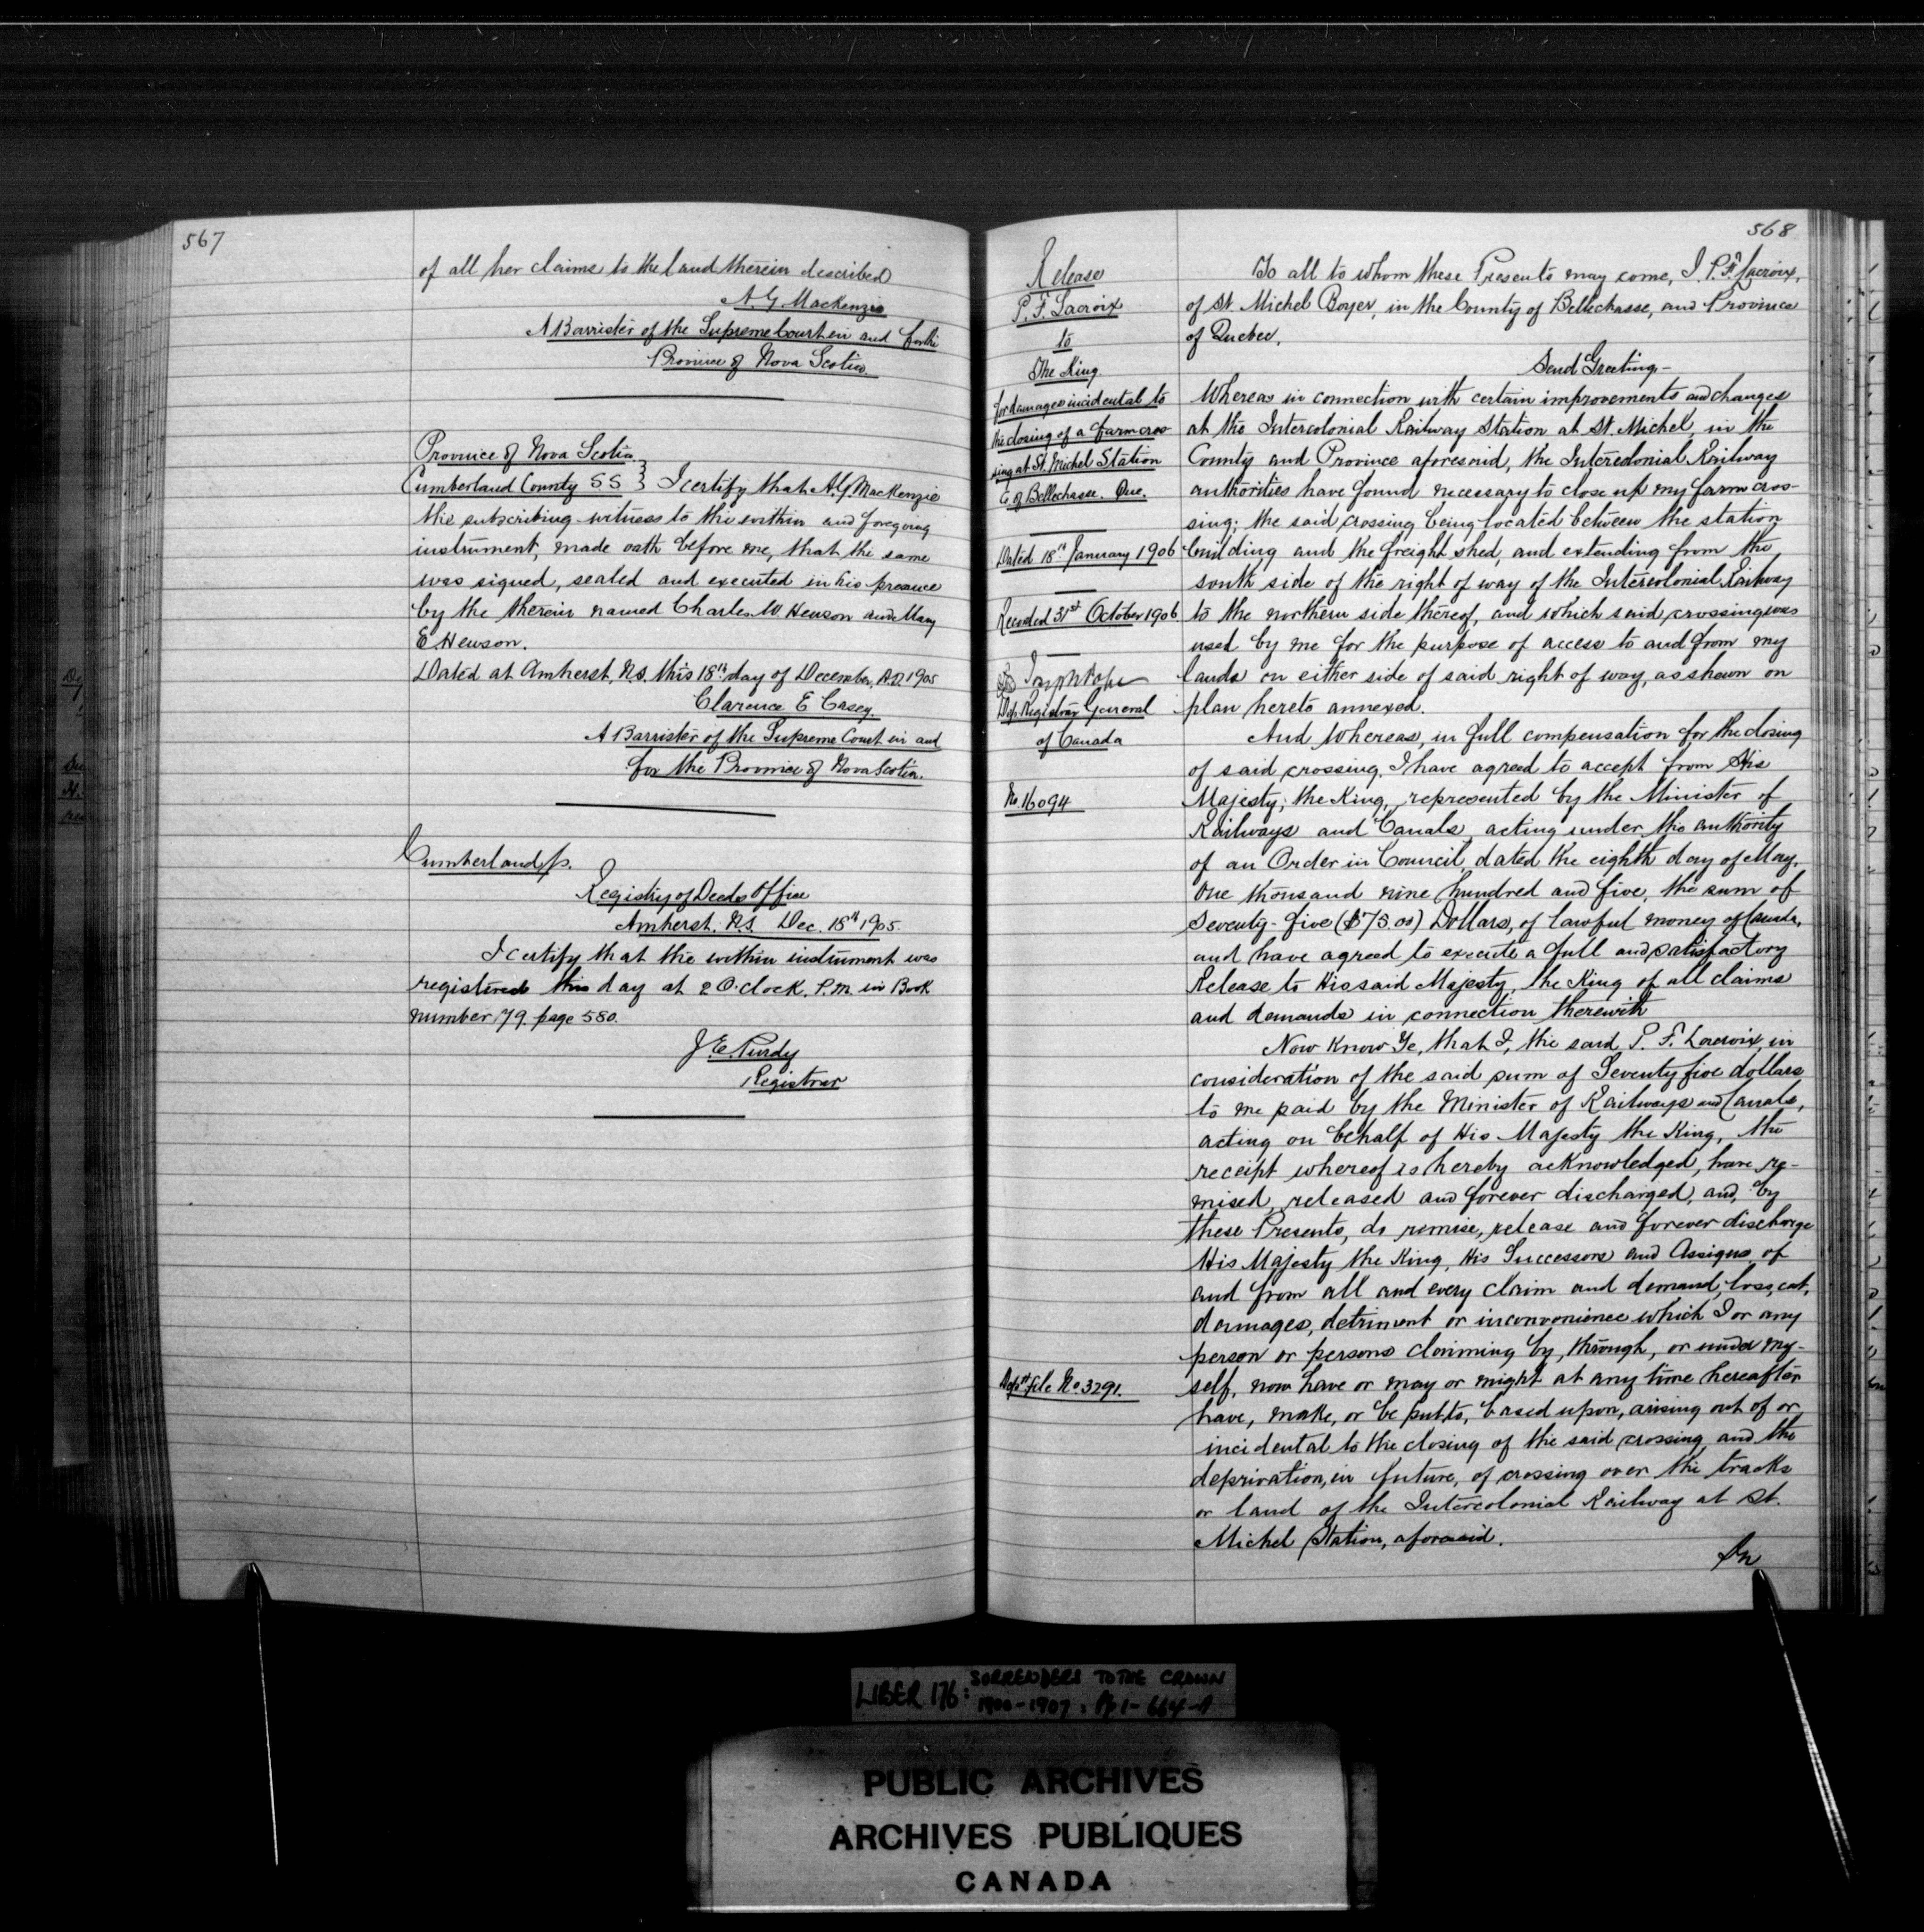 567
of all her claims to the land therein described
A. G. Mackenzie
A Barrister of the Supreme Court in and for the
Province of Nova Scotia.
Province of Nova Scotia
Cumberland County SS } I certify that A. G. MacKenzie
the subscribing witness to the within and foregoing
instrument, made oath before me, that the same
was signed, sealed and executed in his presence
by the therein named Charles W. Hewson and Mary
E. Hewson.
Dated at Amherst, N.S. this 18th day of December, A.D. 1905
Clarence E Casey.
A Barrister of the Supreme Court in and
for the Province of Nova Scotia.
Cumberland ss.
Registry of Deeds Office
Amherst. N.S. Dec. 18th 1905.
I certify that the within instrument was
registered this day at 2 O'clock. P.M. in Book
number 79. page 580.
J. E. Purdy
Registrar
568
Release
P. F. Lacroix
to
The King.
for damages incidental to
the closing of a farm cros-
sing at St. Michel Station
C. of Bellechasse. Que.
Dated 18th January 1906
Recorded 31st October 1906
Joseph Pope
Dep. Registrar General
of Canada
No. 16094
Dept file No 3291.
To all to whom these Presents may come, I. P. F. Lacroix,
of St. Michel Boyer, in the County of Bellechasse, and Province
of Quebec,
Send Greeting-
Whereas in connection with certain improvements and changes
at the Intercolonial Railway Station at St. Michel, in the
County and Province aforesaid, the Intercolonial Railway
authorities have found necessary to close up my farm cros-
sing; the said crossing being located between the station
building and the freight shed, and extending from the
south side of the right of way of the Intercolonial Railway
to the northern side thereof, and which said crossing was
used by me for the purpose of access to and from my
lands on either side of said right of way, as shewn on
plan hereto annexed.
And Whereas, in full compensation for the closing
of said crossing, I have agreed to accept from His
Majesty, the King, represented by the Minister of
Railways and Canals, acting under the authority
of an Order in Council dated the eighth day of May,
one thousand nine hundred and five, the sum of
Seventy-five ($75.00) Dollars, of lawful money of Canada,
and have agreed to execute a full and satisfactory
Release to His said Majesty, the King of all claims
and demands in connection therewith
Now Know Ye, that I, the said P. F. Lacroix, in
consideration of the said sum of Seventy five dollars
to me paid by the Minister of Railways and Canals,
acting on behalf of His Majesty the King, the
receipt whereof is hereby acknowledged, have re-
mised, released and forever discharged, and, by
these Presents, do remise, release and forever discharge
His Majesty the King, His Successors and Assigns of
and from all and every claim and demand, loss, cost,
damages, detriment or inconvenience which I or any
person or persons claiming by, through, or under my-
self, now have or may or might at any time hereafter
have, make, or be put to, based upon, arising out of or
incidental to the closing of the said crossing, and the
deprivation, in future, of crossing over the tracks
or land of the Intercolonial Railway at St.
Michel Station, aforesaid.
In
LIBER 176: SURRENDERS TO THE CROWN
1900-1907: Pp 1-664-A
PUBLIC ARCHIVES
ARCHIVES PUBLIQUES
CANADA